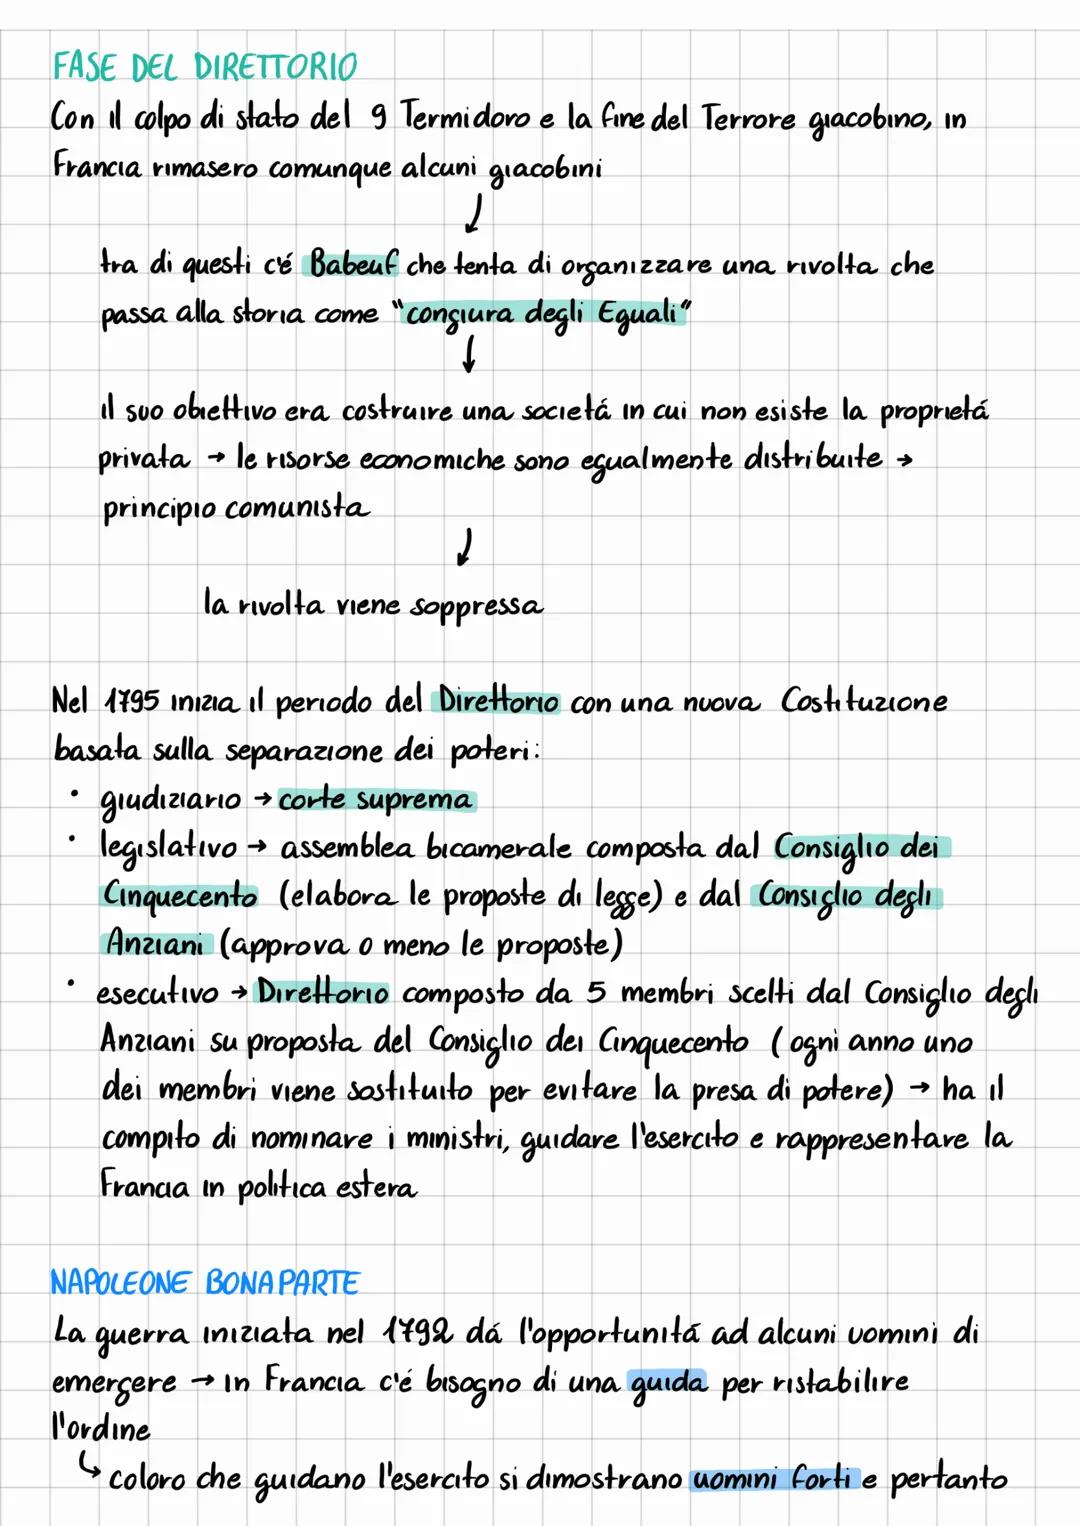 FASE DEL DIRETTORIO
Con il colpo di stato del 9 Termidoro e la fine del Terrore giacobino, in
Francia rimasero comunque alcuni giacobini
↓
tra di questi c'é Babeuf che tenta di organizzare una rivolta che
passa alla storia come "congiura degli Eguali"
↓
il suo obiettivo era costruire una societá in cui non esiste la proprietá
privata → le risorse economiche sono egualmente distribuite →
principio comunista
↓
la rivolta viene soppressa
Nel 1795 inizia il periodo del Direttorio con una nuova Costituzione
basata sulla separazione dei poteri:
• giudiziario → corte suprema
• legislativo → assemblea bicamerale composta dal Consiglio dei
Cinquecento (elabora le proposte di legge) e dal Consiglio degli
Anziani (approva o meno le proposte)
• esecutivo → Direttorio composto da 5 membri scelti dal Consiglio degli
Anziani su proposta del Consiglio dei Cinquecento (ogni anno uno
dei membri viene sostituito per evitare la presa di potere) → ha il
compito di nominare i ministri, guidare l'esercito e rappresentare la
Francia in politica estera
NAPOLEONE BONAPARTE
La guerra iniziata nel 1792 dá l'opportunitá ad alcuni uomini di
emergere → in Francia c'é bisogno di una guida per ristabilire
l'ordine
↳ coloro che guidano l'esercito si dimostrano uomini forti e pertanto